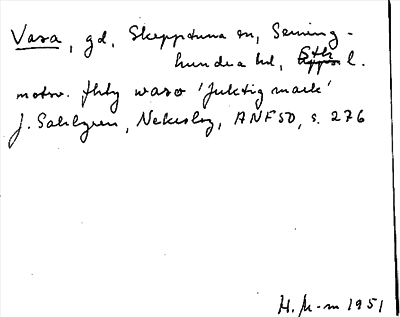 Vasa, gd, Skepptuna sn, Seming-
hundra hd, Sthlm l.
motsv. fhty waso 'fuktig mark'
J. Sahlgren, Nekeslog, ANF 50, s. 276
H. M-m 1951